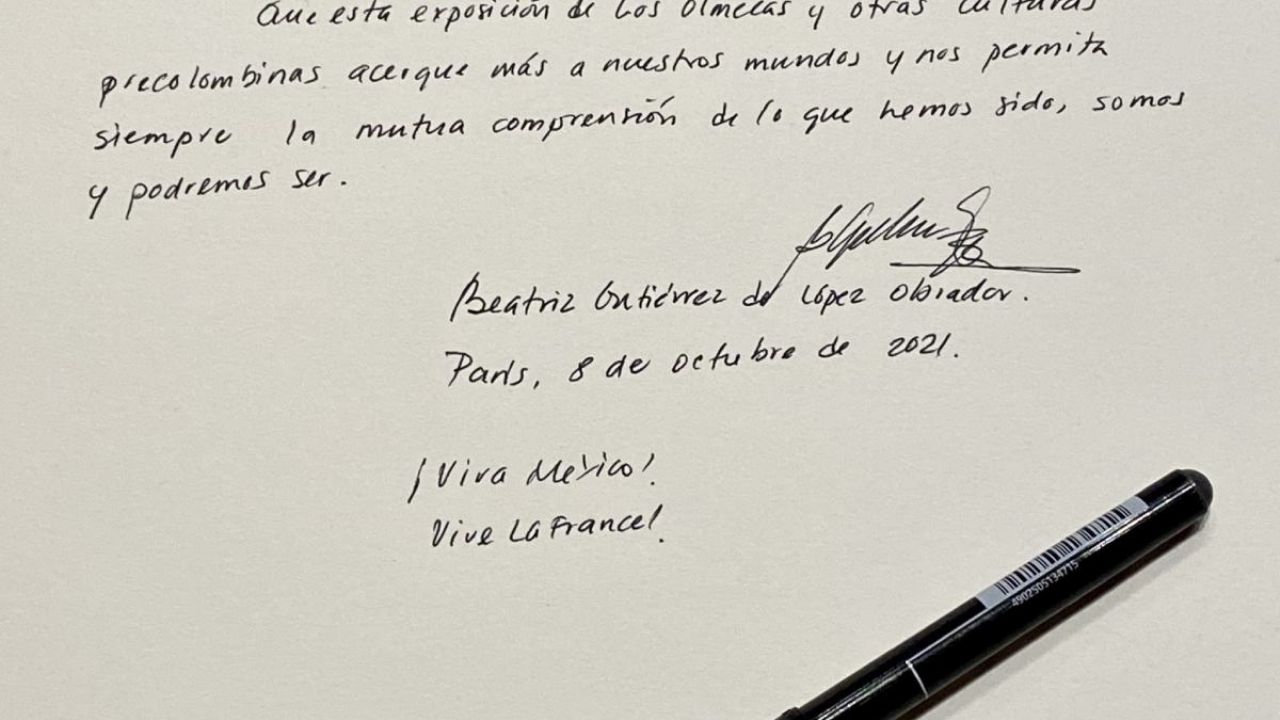 Que esta exposición de Los Olmecas y otras culturas
precolombinas acerque más a nuestros mundos y nos permita
siempre la mutua comprensión de lo que hemos sido, somos
y podremos ser.
Beatriz Gutiérrez de López Obrador.
París, 8 de octubre de 2021.
¡Viva México!
Vive La France!
4902505134715